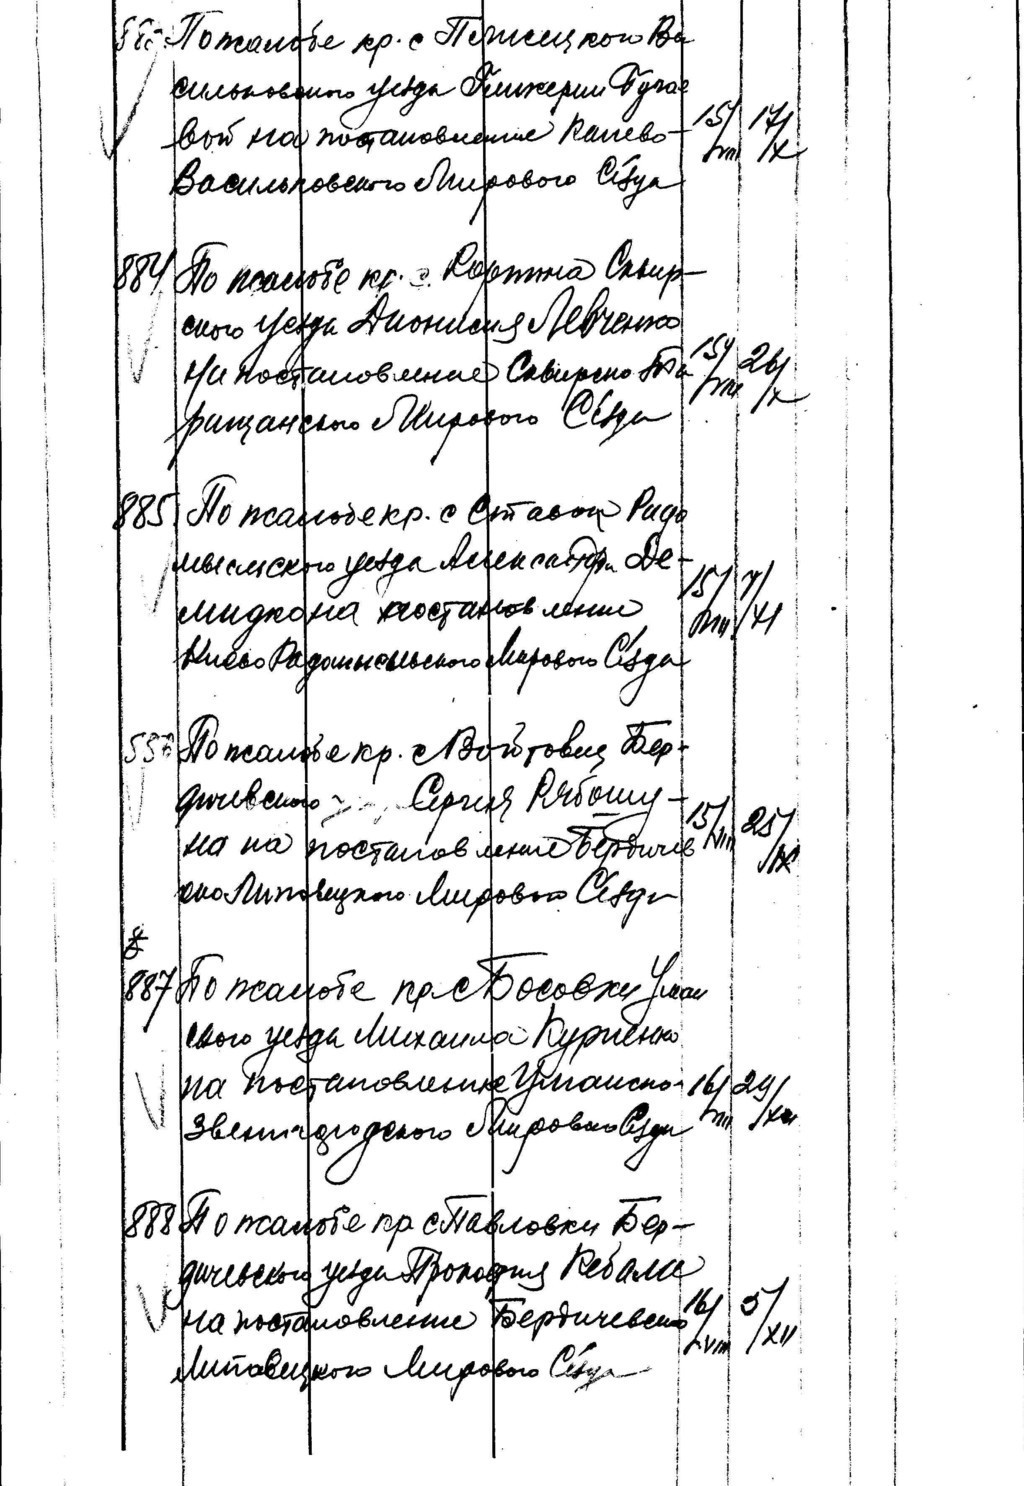 По жалобе кр. с
уезда
вой на постановление Киево-
Васильковского Мирового Съезда
15/VIII 17/X
884 По жалобе кр. с. Сквир-
ского уезда Дионисия Левченко
на постановление Сквирско-Та
ращанского Мирового Съезда
15/VIII 26/X
885 По жалобе кр. с Ставок Радо
мысльского уезда Александра Де-
мидко на постановление
Киево Радомысльского Мирового Съезда
15/VIII 7/XI
По жалобе кр. с Войтовец Бер-
дичевского Сергия Рябошу-
на на постановление Бердичев
ско Липовецкого Мирового Съезда
15/VIII 25/IX
887 По жалобе кр с Босовки Уман
ского уезда Михаила Куриленко
на постановление Уманско-
Звенигородского Мирового Съезда
16/VIII 29/XII
888 По жалобе кр с Павловки Бер-
дичевского уезда Прокофия
на постановление Бердичевско
Липовецкого Мирового Съезда
16/VIII 5/XII